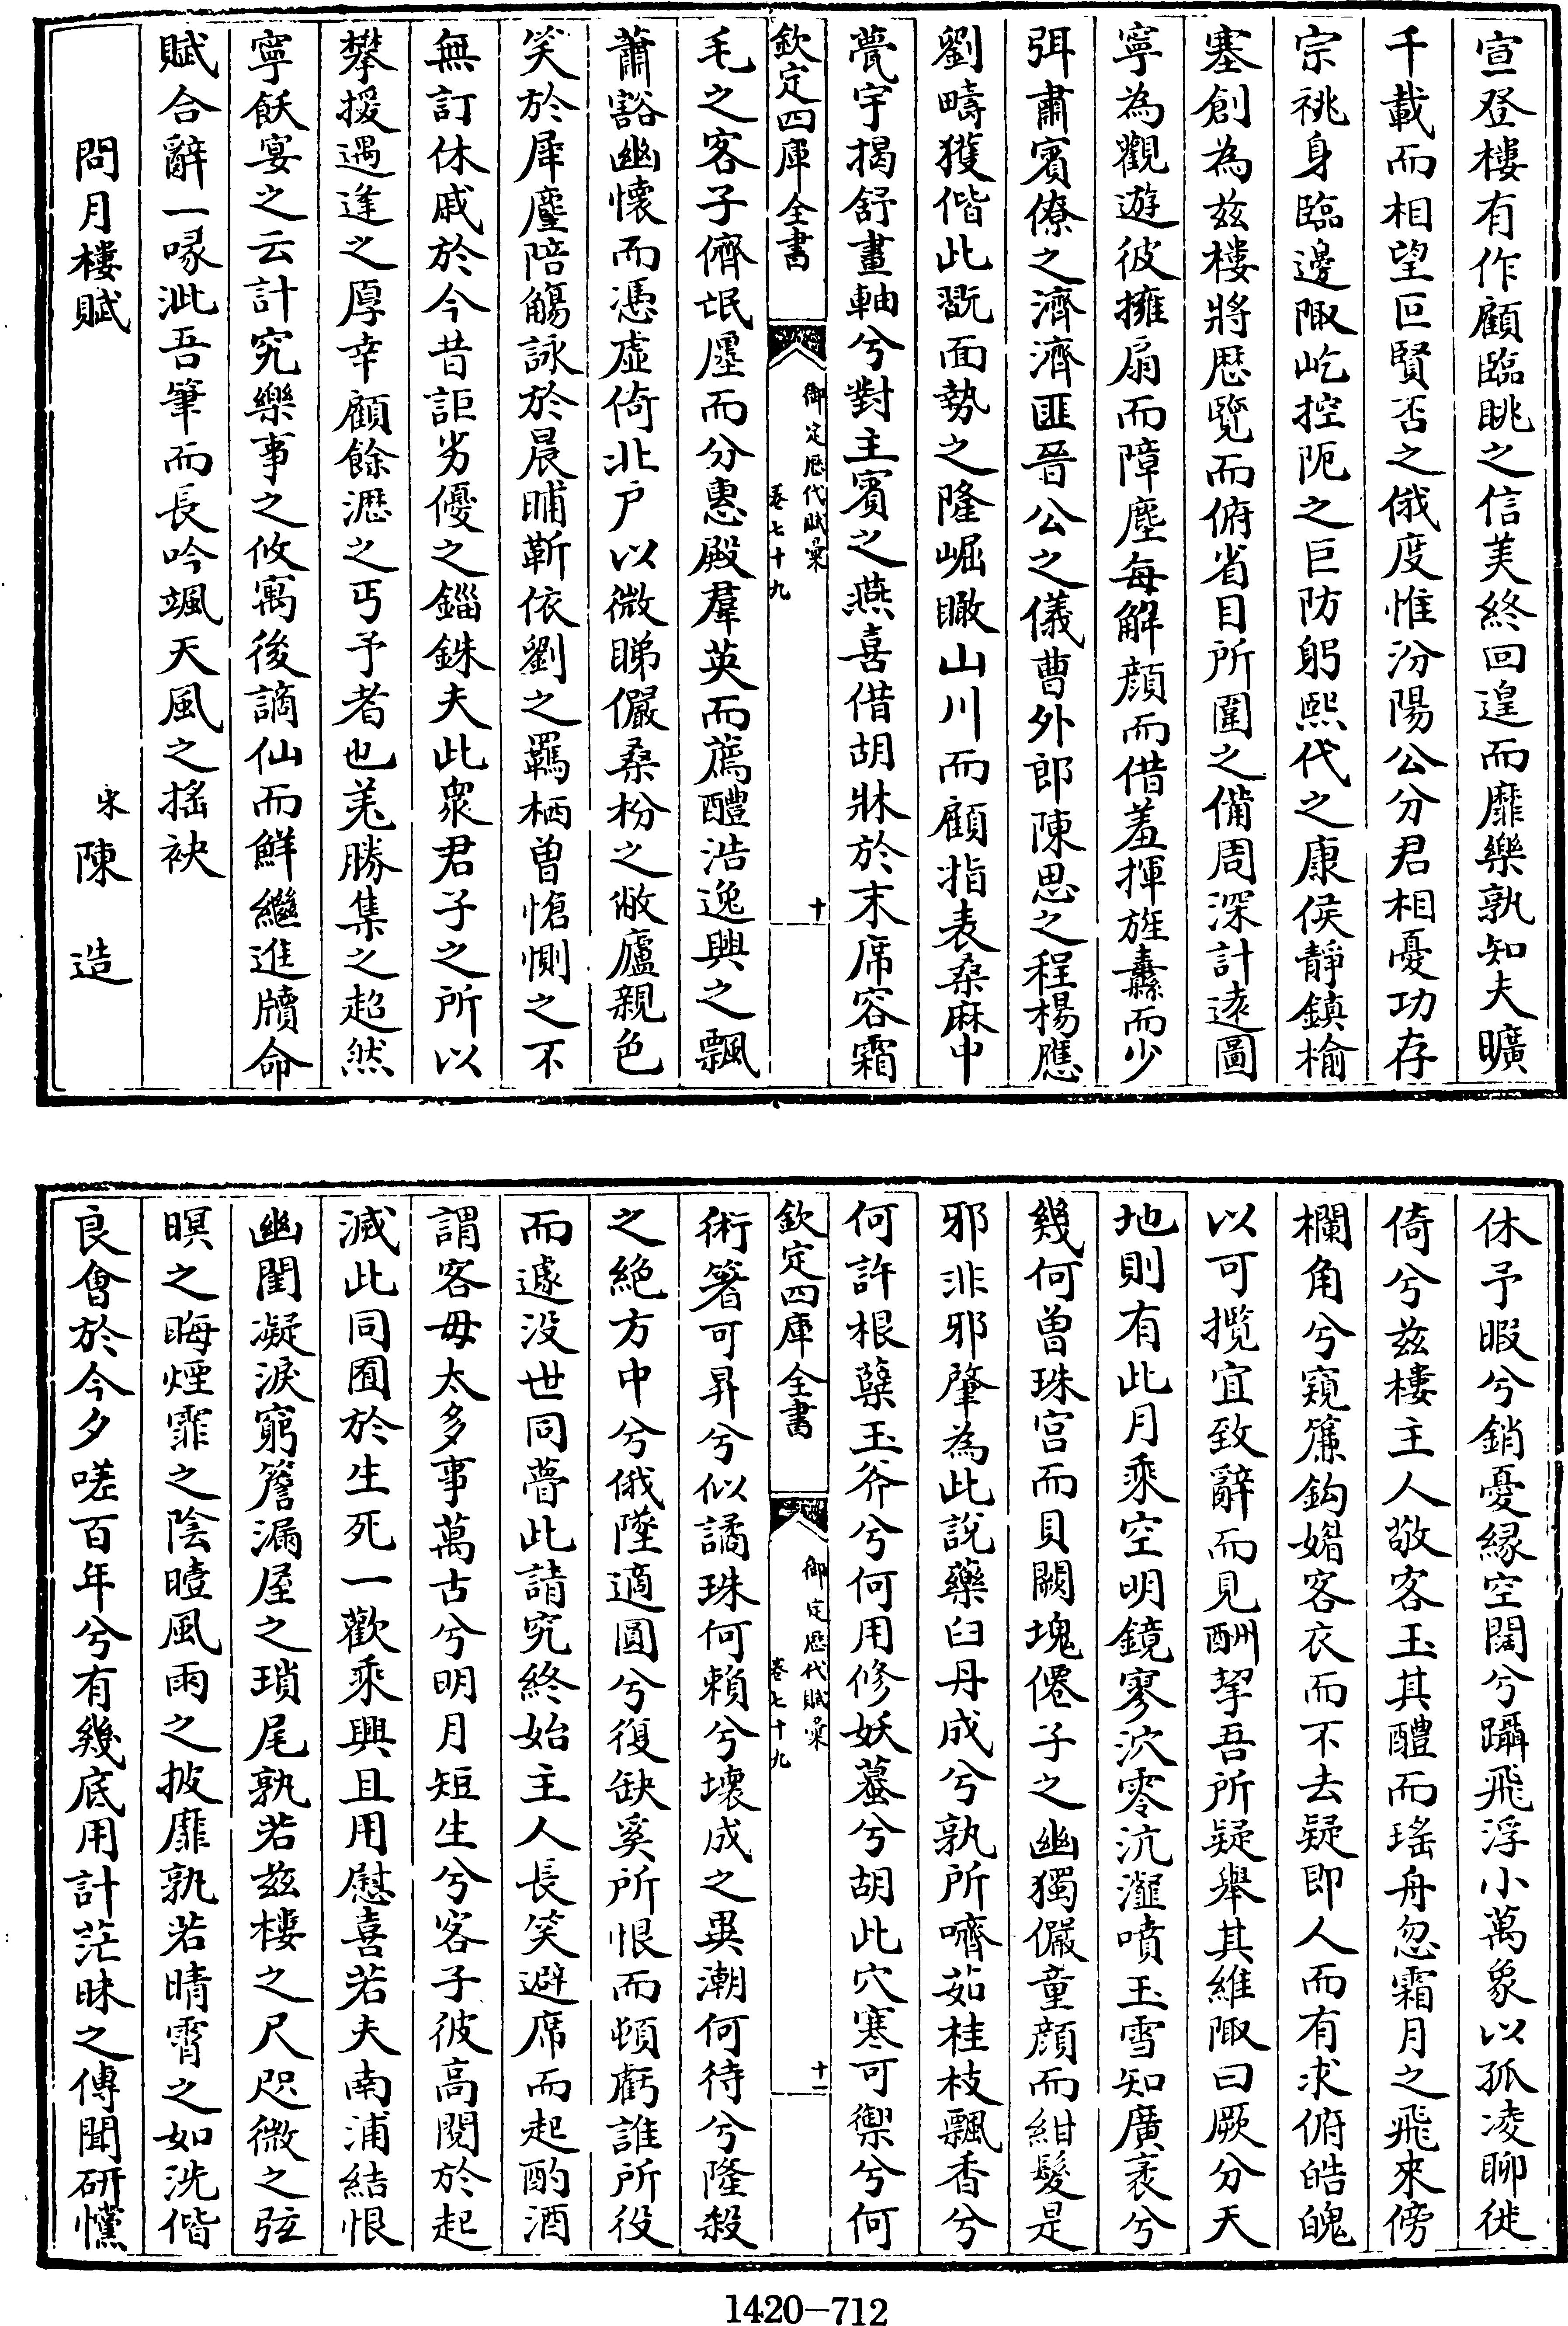 宣登樓有作顧臨眺之信美終回遑而靡樂孰知夫曠
千載而相望叵賢否之俄度惟汾陽公分君相憂功存
宗祧身臨邊陬屹控阨之巨防躬熙代之康侯靜鎮榆
塞創為兹樓將歴覽而俯省目所圍之備周深計遠圖
寧為觀遊彼擁扇而障塵每解顔而借羞揮旌纛而少
弭肅賓僚之濟濟匪晉公之儀曹外郎陳思之程楊應
劉疇獲偕此翫面勢之隆崛瞰山川而顧指表桑麻中
甍宇揭舒畫軸兮對主賓之燕喜借胡牀於末席容霜
欽定四庫全書
御定歴代賦彙
卷七十九
十
毛之客子儕氓廛而分惠殿羣英而薦醴浩逸興之飄
蕭豁幽懷而憑虚倚北户以微睇儼桑枌之敝廬親色
笑於犀麈陪觴詠於晨晡靳依劉之羈栖曾愴惻之不
無訂休戚於今昔詎劣優之錙銖夫此衆君子之所以
攀援遇逢之厚幸顧餘瀝之丐予者也羌勝集之超然
寧飫宴之云計究樂事之攸寓後謫仙而鮮繼進牘命
賦合辭一喙泚吾筆而長吟颯天風之揺袂
問月樓賦
宋
陳造
休予暇兮銷憂縁空闊兮躡飛浮小萬象以孤凌聊徙
倚兮兹樓主人敬客玉其醴而瑤舟忽霜月之飛來傍
欄角兮窺簾鈎媚客衣而不去疑即人而有求俯皓魄
以可攬宜致辭而見酬挈吾所疑舉其維陬曰厥分天
地則有此月乘空明鏡寥泬零沆瀣噴玉雪知廣袤兮
幾何曽珠宫而貝闕塊僊子之幽獨儼童顔而紺髮是
邪非邪肇為此說藥臼丹成兮孰所嚌茹桂枝飄香兮
何許根蘖玉斧兮何用修妖蟇兮胡此穴寒可禦兮何
欽定四庫全書
御定歴代賦彙
卷七十九
十一
術箸可昇兮似譎珠何頼兮壊成之異潮何待兮隆殺
之絶方中兮俄墜適圓兮復缺奚所恨而頓虧誰所役
而遽没世同瞢此請究終始主人長笑避席而起酌酒
謂客毋太多事萬古兮明月短生兮客子彼高閲於起
滅此同囿於生死一歡乘興且用慰喜若夫南浦結恨
幽閨凝淚窮簷漏屋之瑣尾孰若兹樓之尺咫微之弦
暝之晦煙霏之陰曀風雨之披靡孰若晴霄之如洗偕
良會於今夕嗟百年兮有幾底用計茫昧之傳聞研懽
1420-712